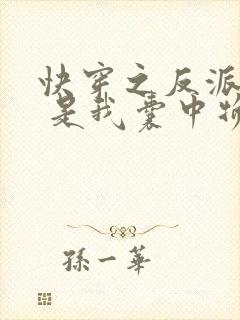 快穿之反派
是我囊中物
孫一華